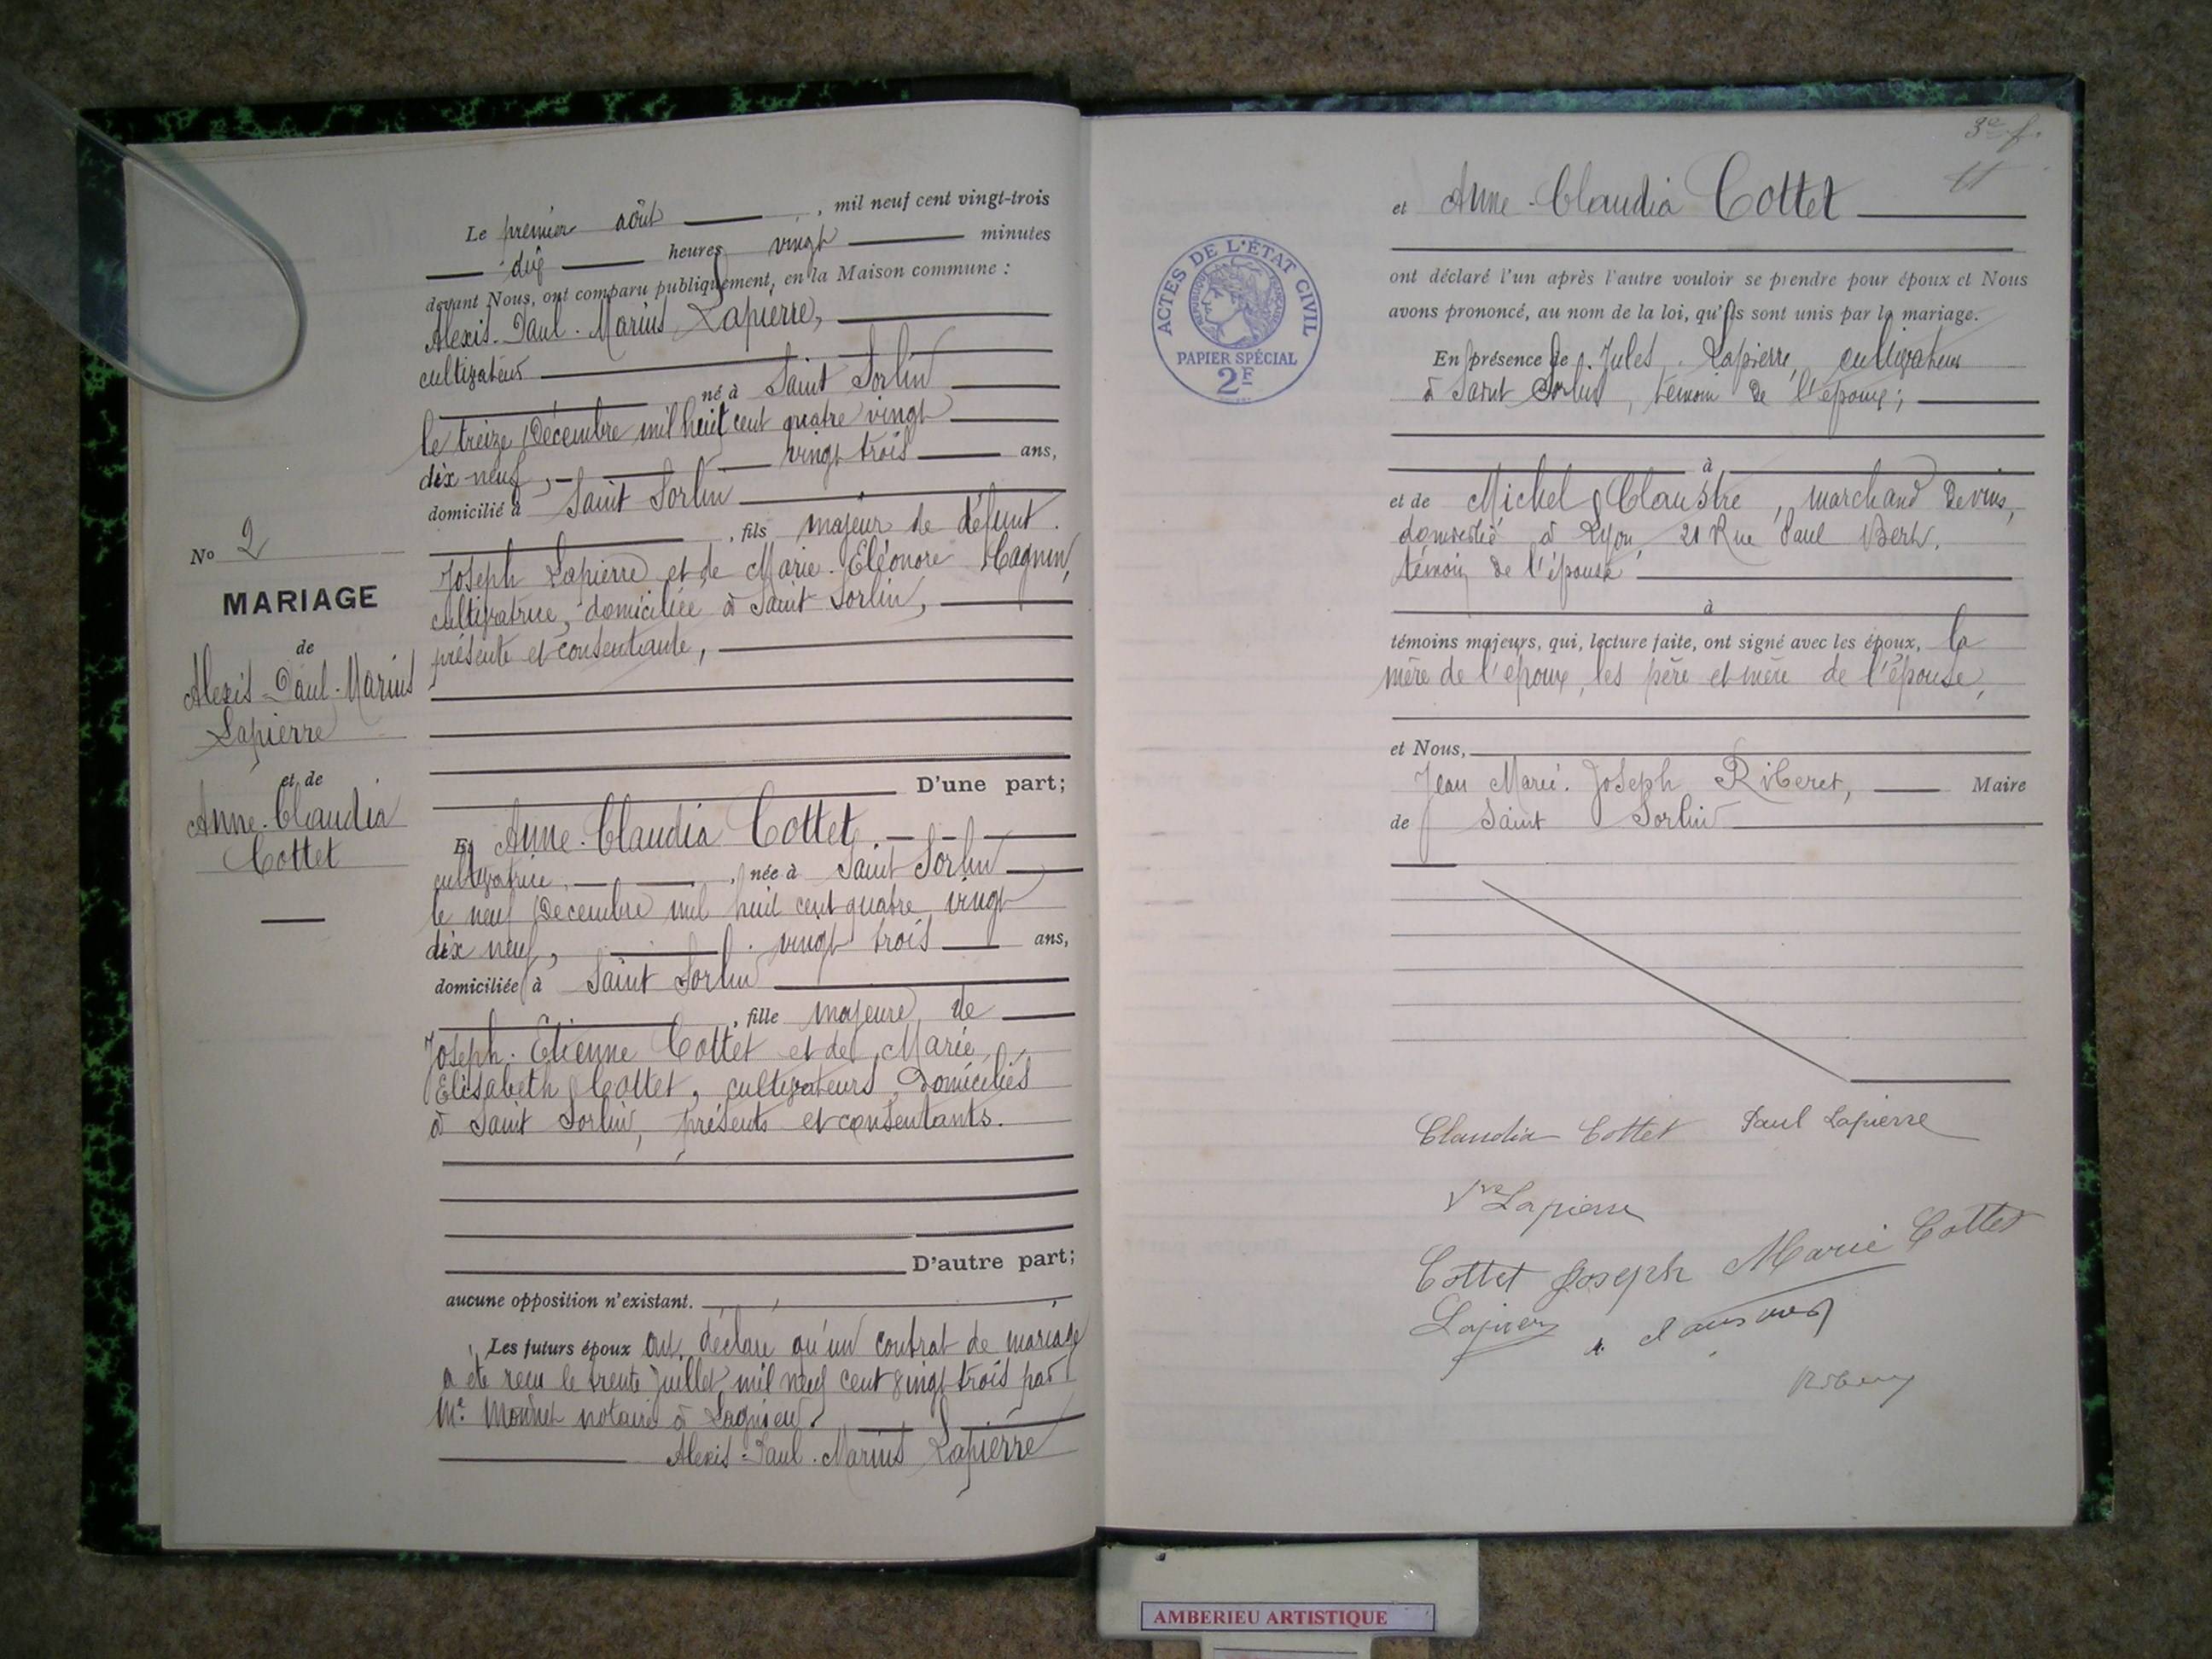 Le premier août, mil neuf cent vingt-trois
dix heures vingt minutes
devant Nous, ont comparu publiquement, en la Maison commune :
Alexis-Paul-Marius Lapierre,
cultivateur
né à Saint Sorlin
le treize Décembre mil huit cent quatre vingt
dix-neuf, vingt trois ans,
domicilié à Saint Sorlin
, fils majeur de défunt
Joseph Lapierre et de Marie-Eléonore Magnin,
cultivatrice, domiciliée à Saint Sorlin,
présente et consentante,
D'une part;
Et Anne-Claudia Cottet,
cultivatrice, née à Saint Sorlin
le neuf Décembre mil huit cent quatre vingt
dix neuf, vingt trois ans,
domiciliée à Saint Sorlin
, fille majeure de
Joseph-Etienne Cottet et de Marie
Elisabeth Cottet, cultivateurs, domiciliés
à Saint Sorlin, présents et consentants.
D'autre part;
aucune opposition n'existant.
Les futurs époux ont déclaré qu'un contrat de mariage
a été reçu le trente Juillet mil neuf cent vingt trois par
Me notaire à Lagnieu.
Alexis-Paul-Marius Lapierre
No 2
MARIAGE
de
Alexis-Paul-Marius
Lapierre
et de
Anne-Claudia
Cottet
3e f.
11
et Anne-Claudia Cottet
ont déclaré l'un après l'autre vouloir se prendre pour époux et Nous
avons prononcé, au nom de la loi, qu'ils sont unis par le mariage.
En présence de Jules Lapierre, cultivateur
à Saint Sorlin, témoin de l'époux;
à
et de Michel Claustre, marchand de vins,
domicilié à Lyon, 21 Rue Paul Bert,
témoin de l'épouse
à
témoins majeurs, qui, lecture faite, ont signé avec les époux, la
mère de l'époux, les père et mère de l'épouse,
et Nous,
Jean Marie Joseph Riberet, Maire
de Saint Sorlin
ACTES DE L'ÉTAT CIVIL
RÉPUBLIQUE FRANÇAISE
PAPIER SPÉCIAL
2F
Claudia Cottet Paul Lapierre
Vve Lapierre
Cottet Joseph Marie Cottet
AMBERIEU ARTISTIQUE